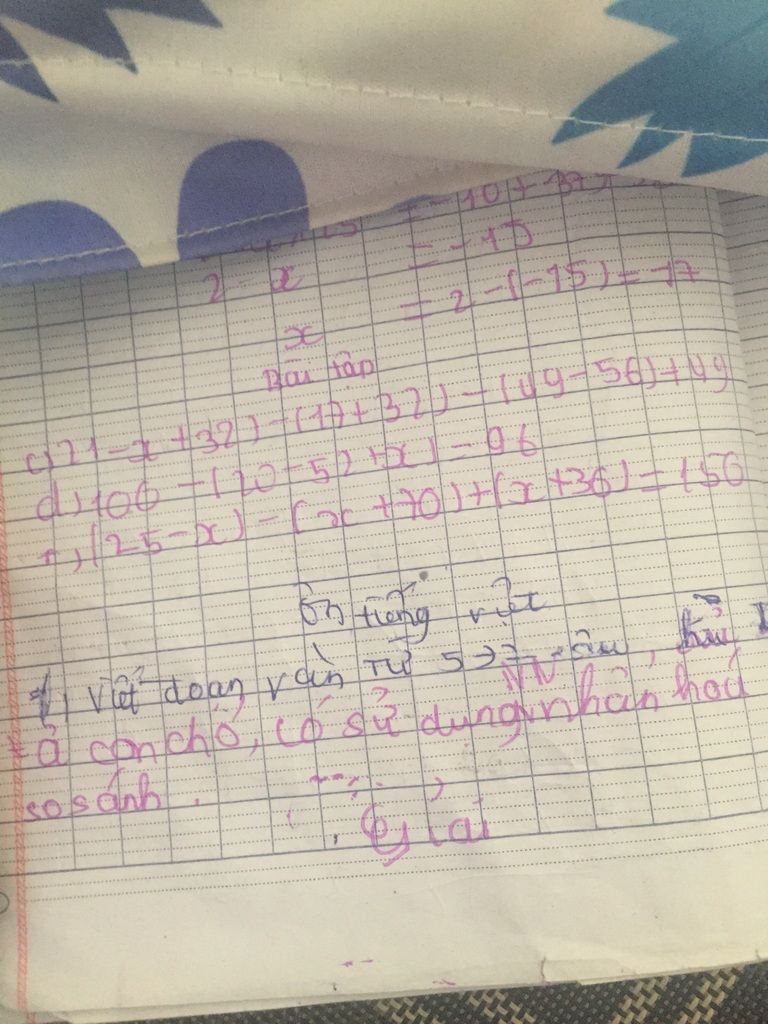 = -10 + 37
= -15
2 - x = 2 - (-15) = 17
x
Bài tập
c) 21 - x + 32) - (17 + 32) - (49 - 56) + 49
d) 106 - (20 - 52 + x) - 96
(25 - x) - (x + 70) + (x + 36) = 150
ôn tiếng việt
1, viết đoạn văn từ 5 → 7 câu,
tả con chó, có sử dụng nhân hoá
so sánh.
giải